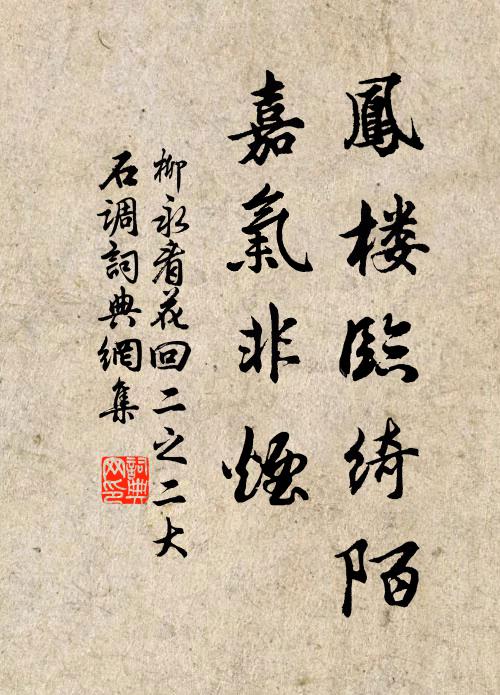 鳳楼臨綺陌
嘉氣非煙
柳永看花回二之二大
石调詞典網集
詞典网印